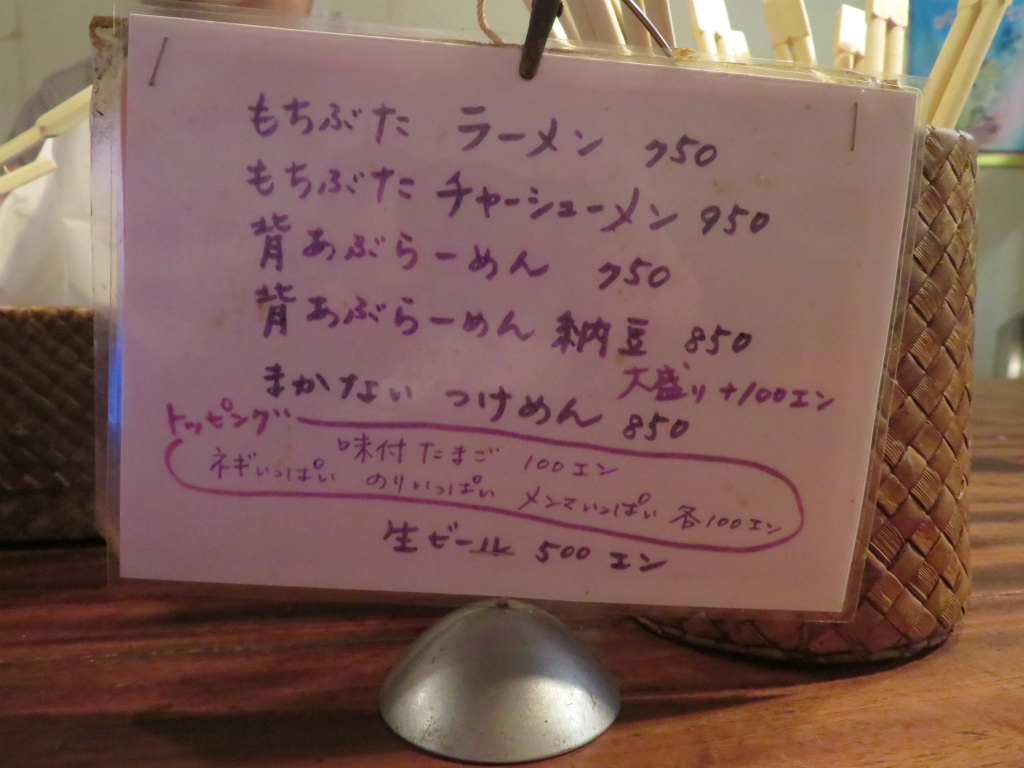 もちぶた ラーメン 750
もちぶた チャーシューメン 950
背あぶらーめん 750
背あぶらーめん 納豆 850
大盛り +100エン
まかない つけめん 850
トッピング
味付たまご 100エン
ネギいっぱい のりいっぱい メンマいっぱい 各100エン
生ビール 500エン